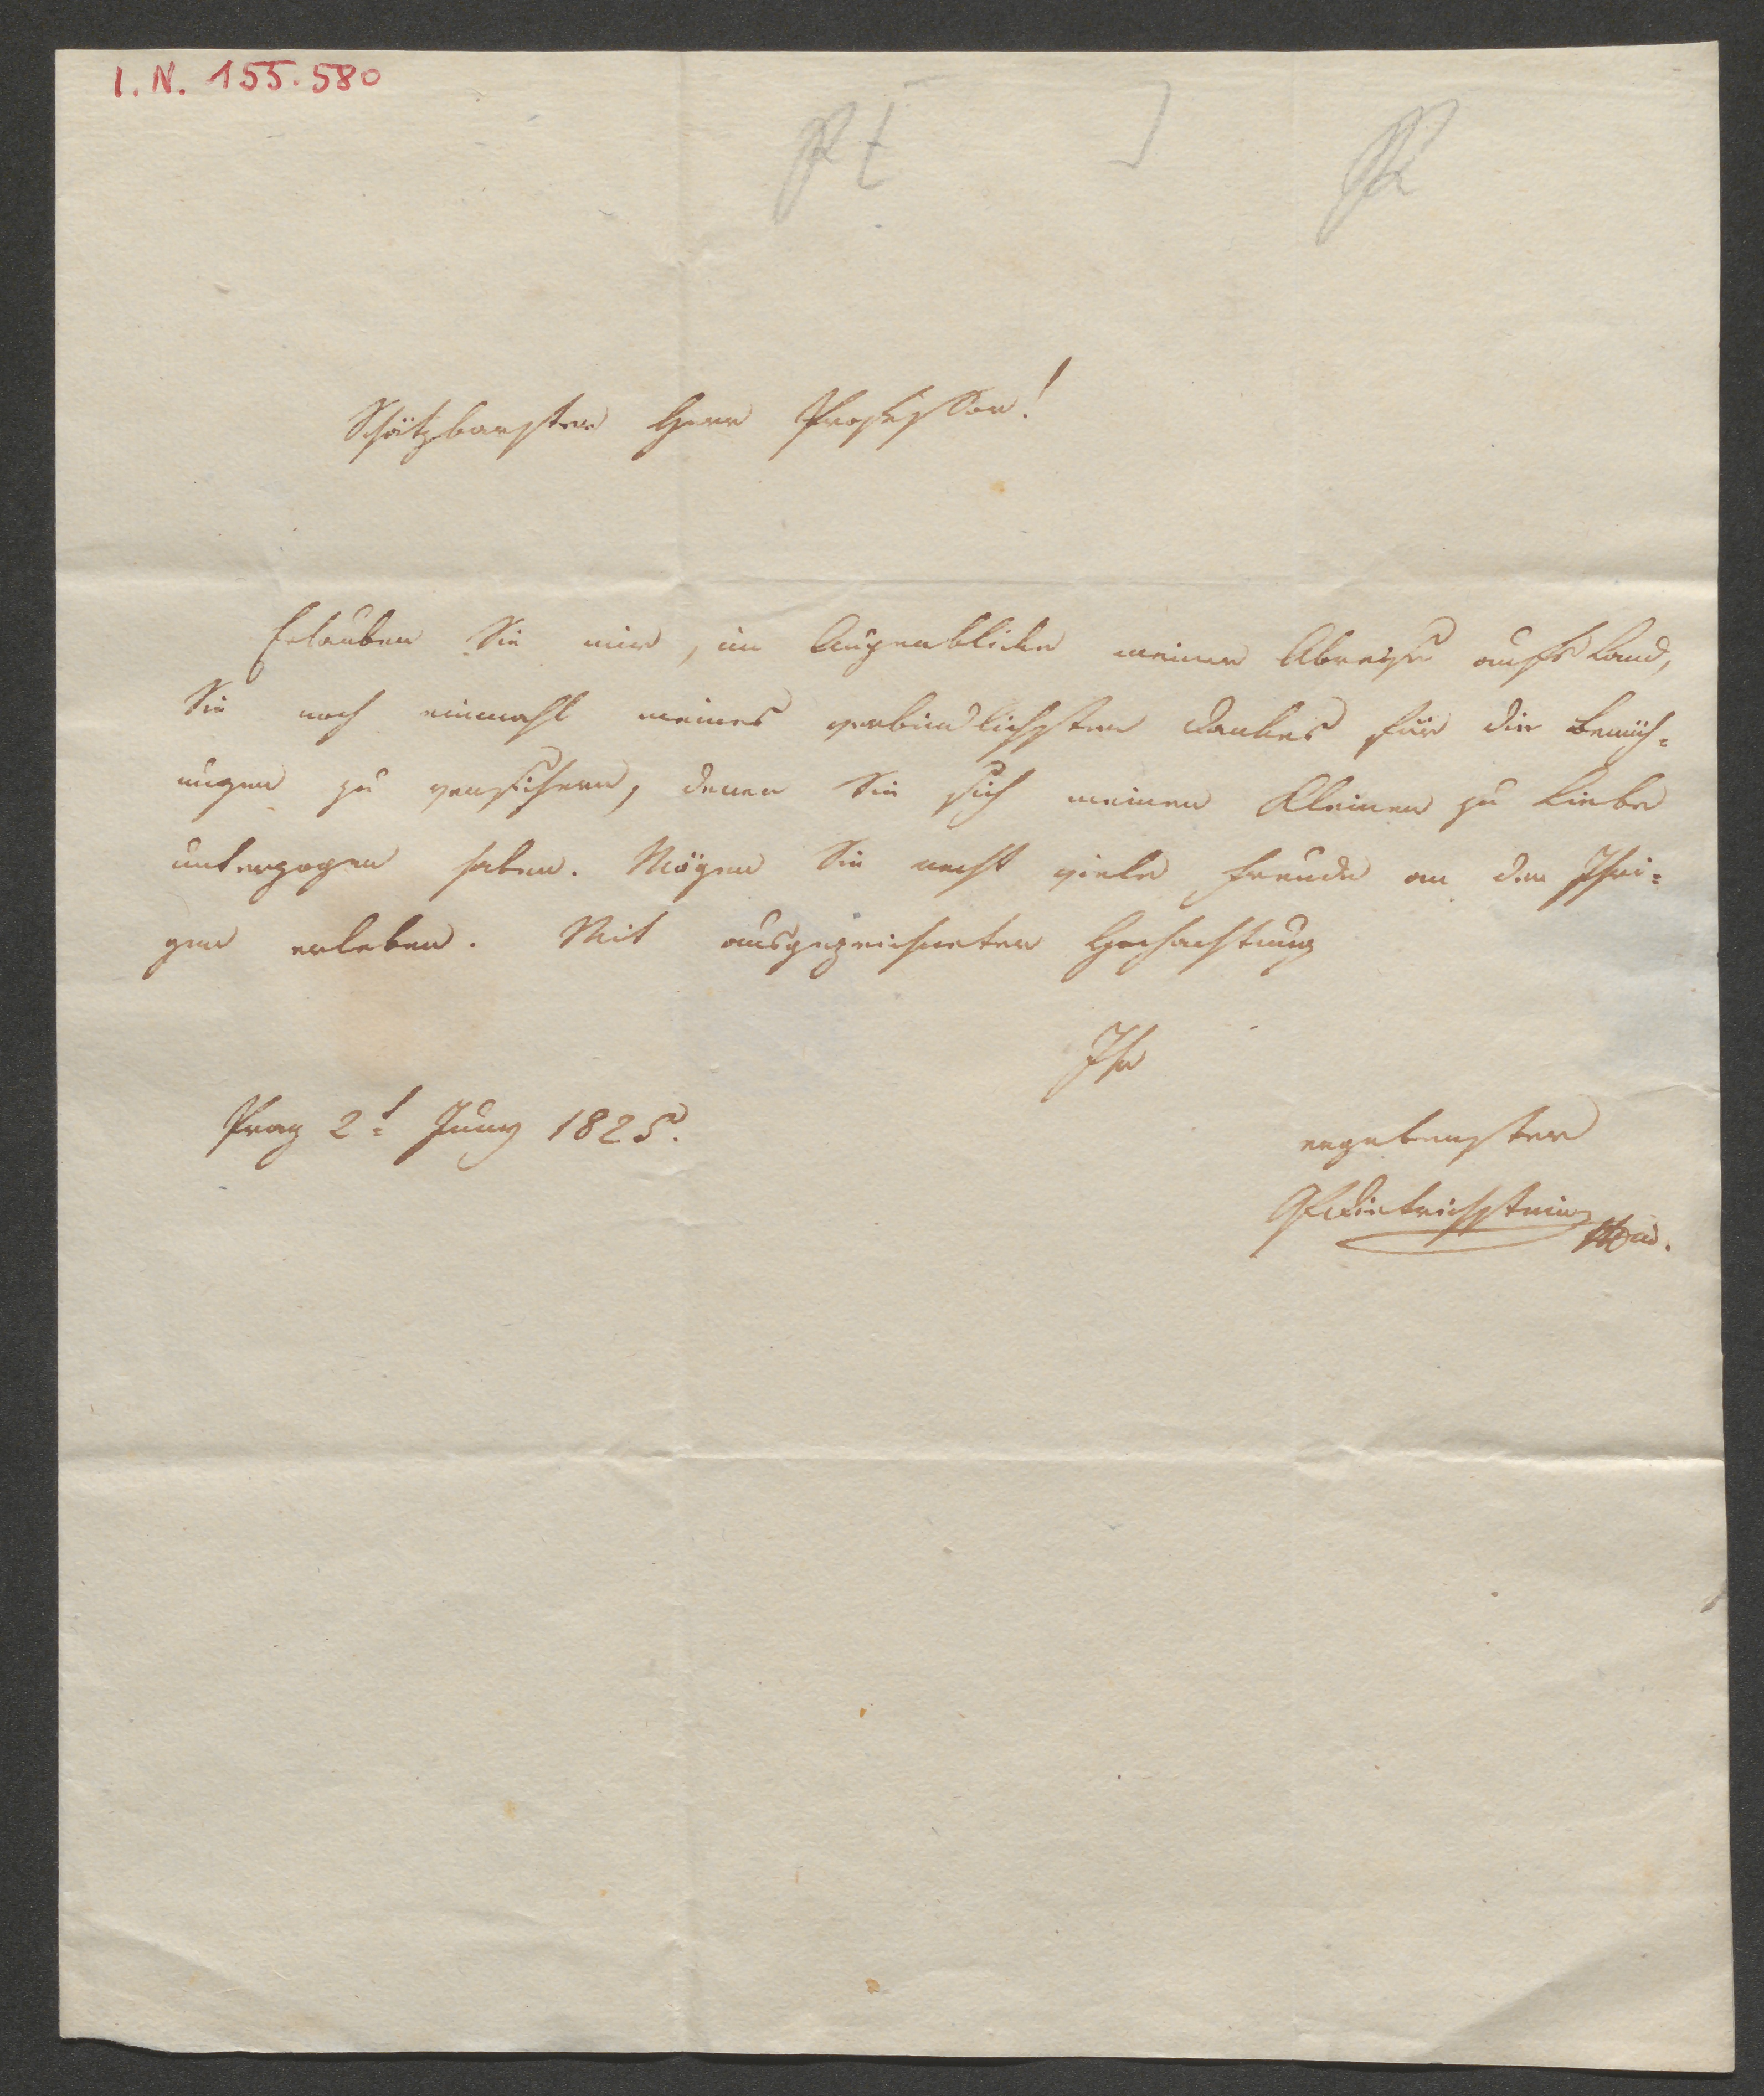 I. N. 155.580
Schätzbarster Herr Professor!
Erlauben Sie mir, im Augenblicke meiner Abreise aufs Land,
Sie noch einmahl meines verbindlichsten Dankes für die Bemüh=
ungen zu versichern, denen Sie sich meinen Kleinen zu Liebe
unterzogen haben. Mögen Sie recht viele Freude an den Ihri=
gen erleben. Mit ausgezeichneter Hochachtung
Ihr
Prag 2t Juny 1825.
ergebenster
Dietrichstein